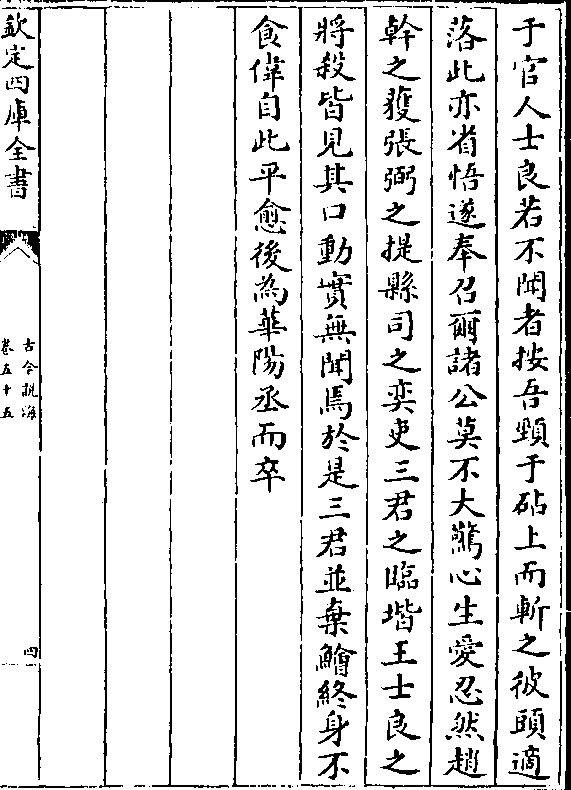 于官人士良若不聞者按吾頸于砧上而斬之彼頭適
落此亦省悟遂奉召爾諸公莫不大驚心生愛忍然趙
幹之獲張弼之提縣司之奕吏三君之臨堦王士良之
將殺皆見其口動實無聞焉於是三君並棄鱠終身不
食偉自此平愈後為華陽丞而卒
欽定四庫全書
古今說海
卷五十五
四